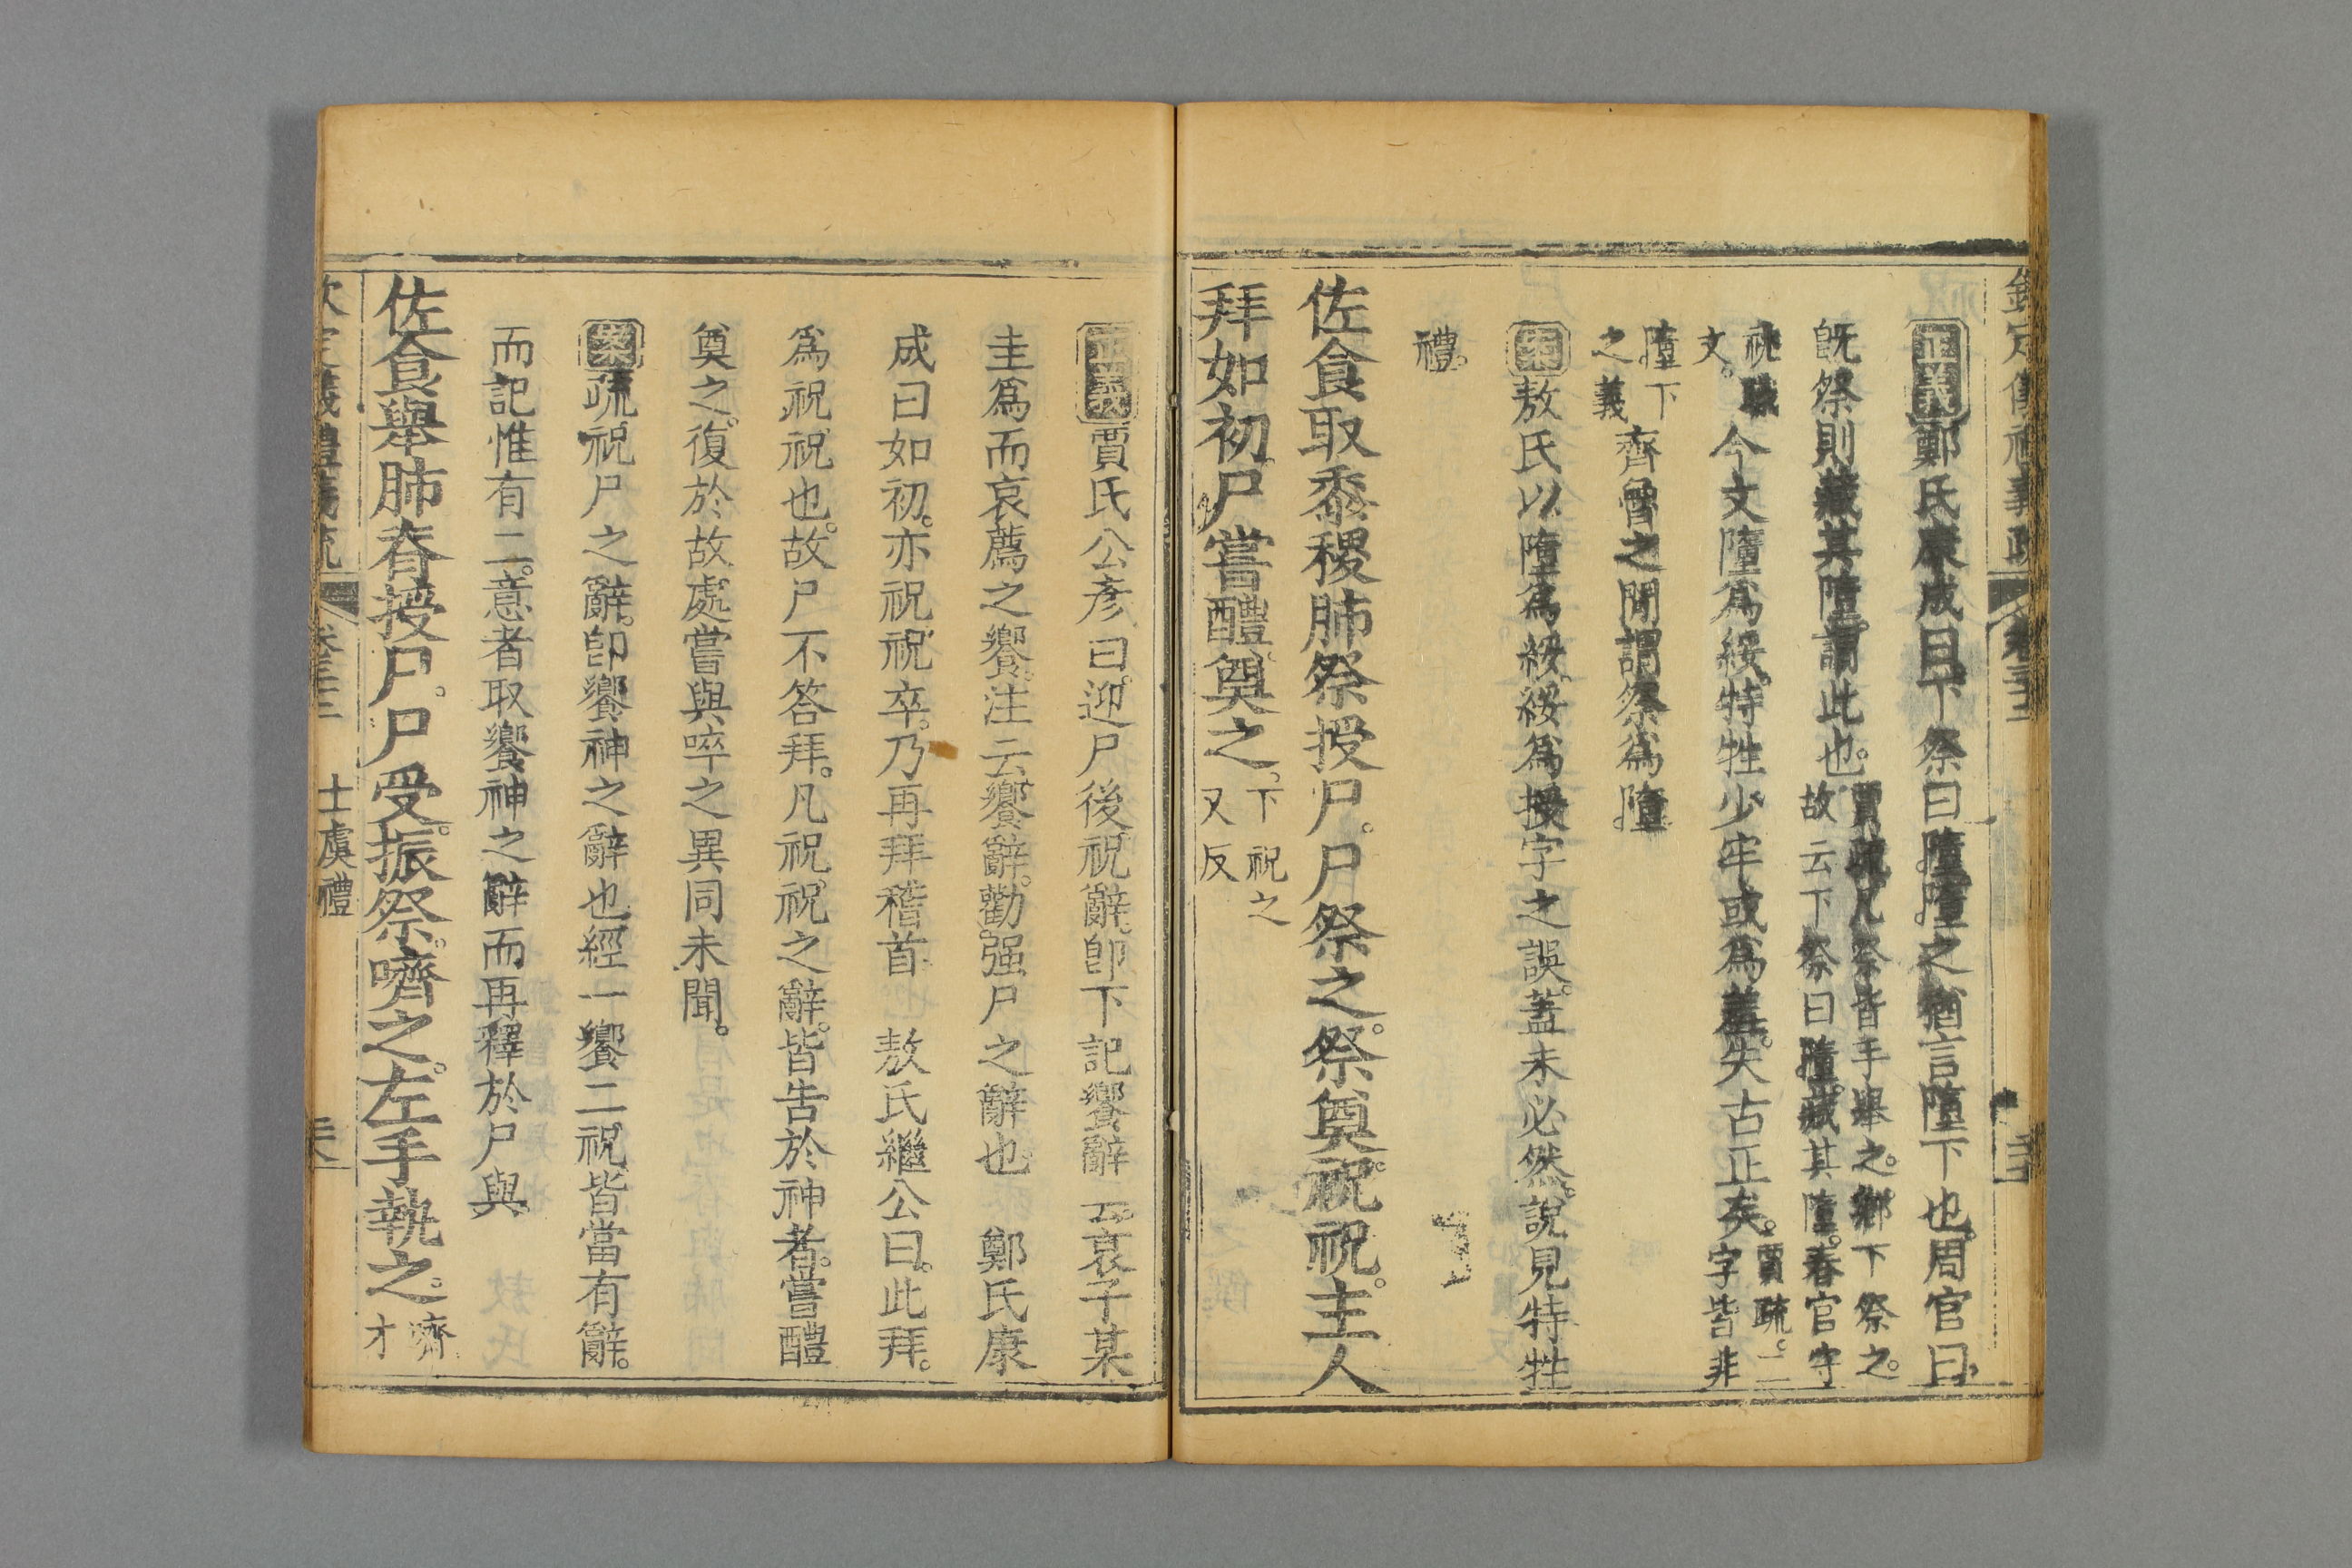 欽定儀禮義疏 卷三十三
正義鄭氏康成曰下祭曰墮墮之猶言墮下也周官曰
既祭則藏其墮謂此也賈疏凡祭皆手舉之鄉下祭之
故云下祭曰墮藏其墮春官守
祧職
文今文墮為綏特牲少牢或為羞失古正矣賈疏二
字皆非
墮下
之義齊魯之閒謂祭為墮
案敖氏以墮為綏綏為授字之誤蓋未必然説見特牲
禮
佐食取黍稷肺祭授尸尸祭之祭奠祝祝主人
拜如初尸嘗醴奠之下祝之
又反
正義賈氏公彥曰迎尸後祝辭卽下記饗辭云哀子某
圭為而哀薦之饗注云饗辭勸强尸之辭也 鄭氏康
成曰如初亦祝祝卒乃再拜稽首 敖氏繼公曰此拜
為祝祝也故尸不答拜凡祝祝之辭皆告於神者嘗醴
奠之復於故處嘗與啐之異同未聞
案疏祝尸之辭卽饗神之辭也經一饗二祝皆當有辭
而記惟有二意者取饗神之辭而再釋於尸與
佐食舉肺脊授尸尸受振祭嚌之左手執之嚌
才
欽定儀禮義疏 卷三十三 士虞禮